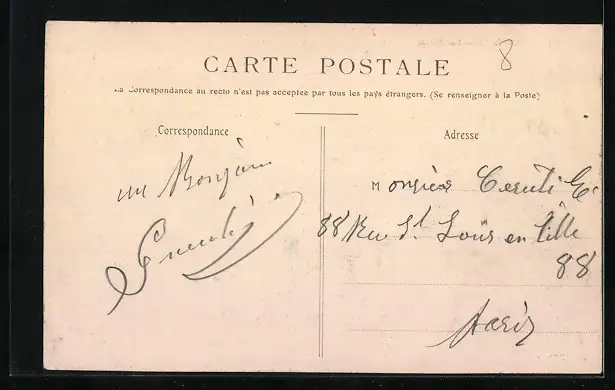 8
CARTE POSTALE
La Correspondance au recto n'est pas acceptée par tous les pays étrangers. (Se renseigner à la Poste)
Correspondance
Adresse
un Bonjour
Monsieur Ceruti
88 Rue St Louis en Lille
88
Paris